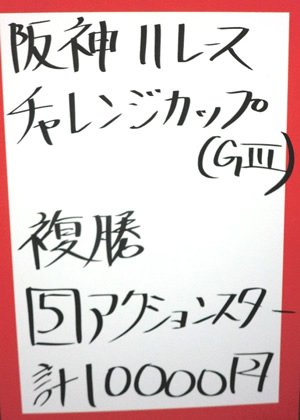 阪神11レース
チャレンジカップ
(GIII)
複勝
5アクションスター
計10000円